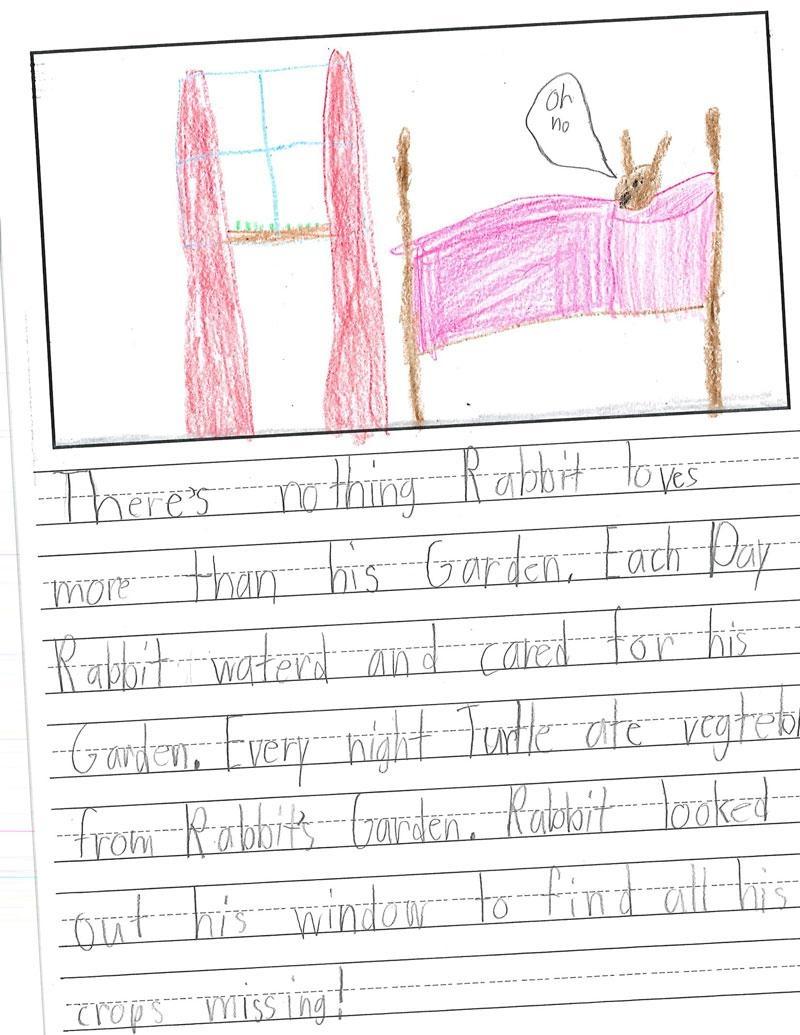 Oh
no
There's nothing Rabbit loves
more than his Garden. Each Day
Rabbit waterd and cared for his
Garden. Every night Turtle ate
from Rabbit's Garden. Rabbit looked
out his window to find all his
crops missing!